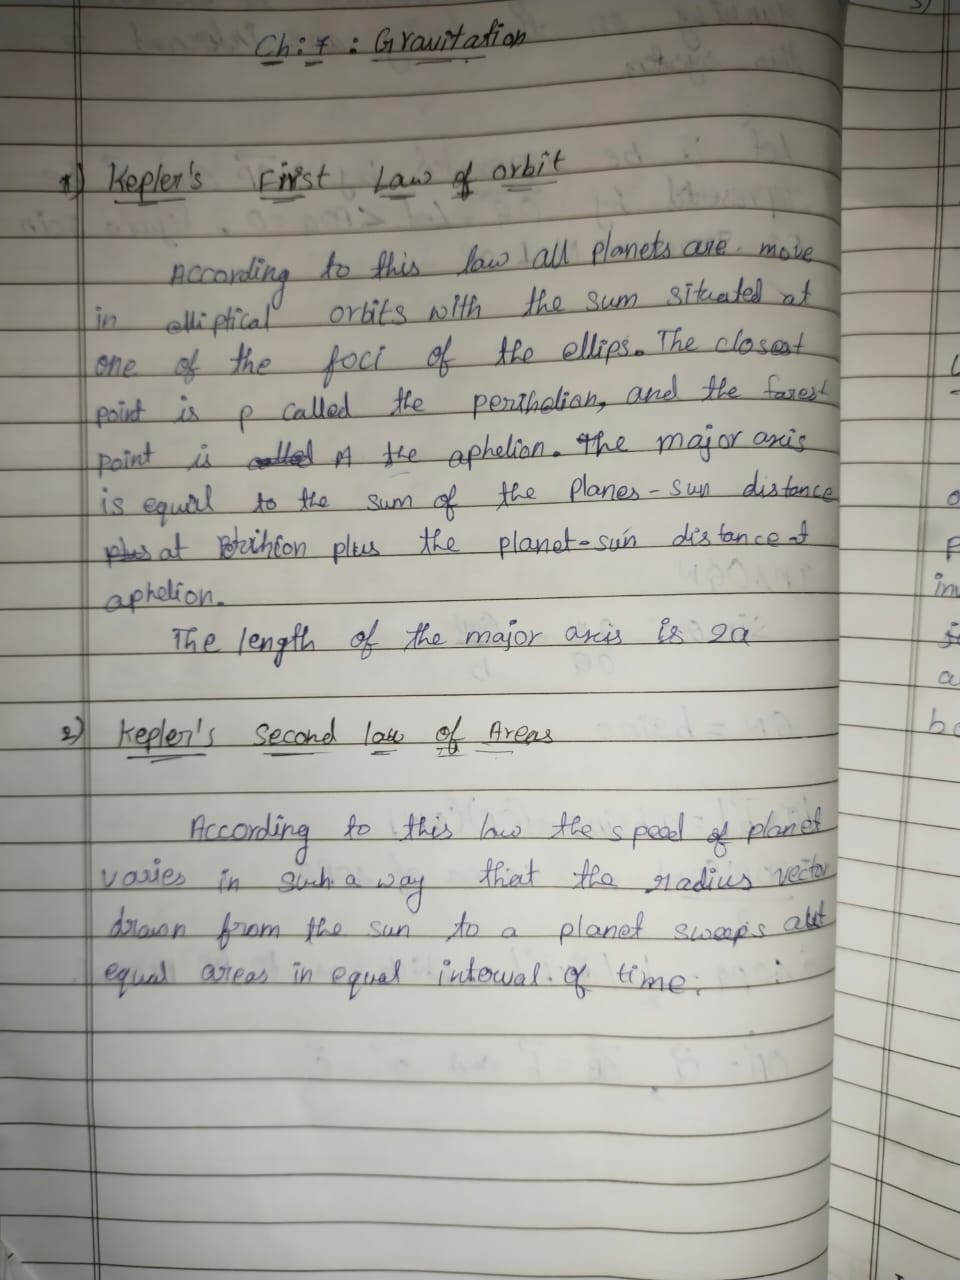 Ch: 7 : Gravitation
1) Kepler's First Law of orbit
According to this law all planets are move
in elliptical orbits with the sum situated at
one of the foci of the ellips. The closest
point is p called the perihelian, and the farest
point is A the aphelion. The major axis
is equal to the sum of the Planes - sun distance
at plus the planet-sun distance at
aphelion.
The length of the major axis is 2a
2) Kepler's Second law of Areas
According to this law the speed of planet
varies in such a way that the radius vector
drawn from the sun to a planet sweeps
equal areas in equal interval of time.